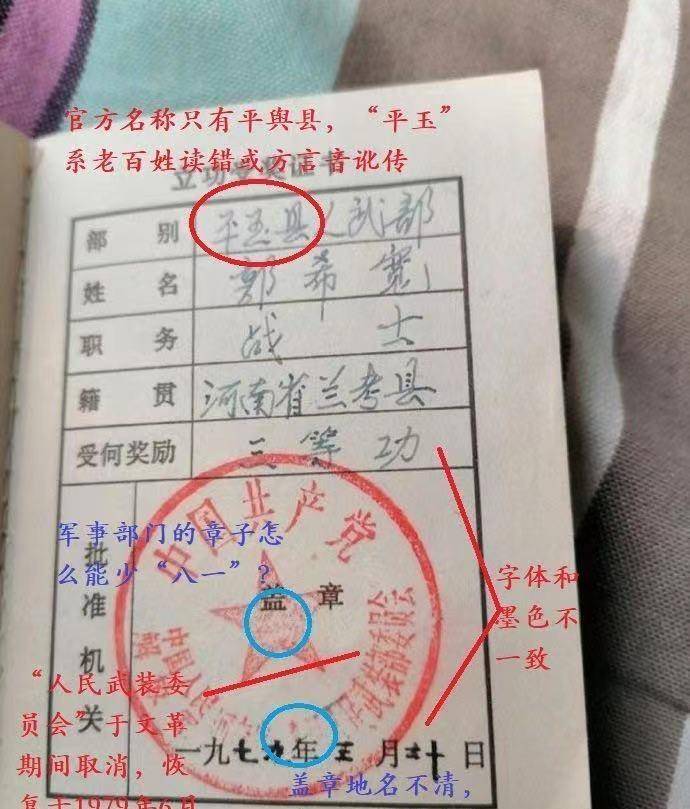 官方名称只有平舆县，“平玉”
系老百姓读错或方言音讹传
立功受奖证书
部 别 平玉县人武部
姓 名 郭希宽
职 务 战 士
籍 贯 河南省兰考县
受何奖励 三等功
批准机关
盖 章
中国共产党
军事部门的章子怎
么能少“八一”？
字体和
墨色不
一致
“人民武装委
员会”于文革
期间取消，恢
复于1979年6月
一九七九年三月二十日
盖章地名不清，